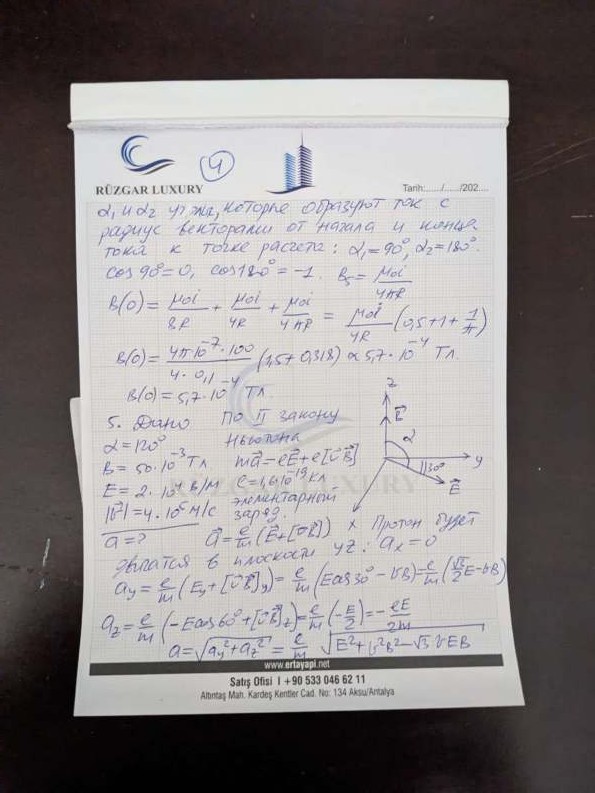 4
RÜZGAR LUXURY
Tarih:....../....../202....
α₁ и α₂ углы, которые образуют ток с
радиус векторами от начала и конца
тока к точке расчета: α₁=90°, α₂=180°.
cos90°=0, cos180°=-1. B₅ = μ₀i/4πR
B(0) = μ₀i/8R + μ₀i/4R + μ₀i/4πR = μ₀i/4R (0,5+1+1/π)
B(0) = 4π10⁻⁷·100/4·0,1 (1,5+0,318) ∝ 5,7·10⁻⁴ Тл.
B(0) = 5,7·10⁻⁴ Тл.
5. Дано По II закону
α=120° Ньютона
B = 50·10⁻³ Тл ma⃗=eE⃗+e[υ⃗B⃗]
E = 2·10⁴ В/м e=1,610⁻¹⁹ кл
элементарный
заряд.
a=? a⃗ = e/m (E⃗+[υ⃗B⃗]) Протон будет
z
α
y
30°
E⃗
x
двигатся в плоскости yz: aₓ=0
a_y = e/m (E_y+[υ⃗B⃗]_y) = e/m (Ecos30°-υB) = e/m (√3/2 E-υB)
a_z = e/m (-Ecos60°+[υ⃗B⃗]_z) = e/m (-E/2) = -eE/2m
a = √(a_y²+a_z²) = e/m √(E²+υ²B²-√3 υEB)
www.ertayapi.net
Satış Ofisi I +90 533 046 62 11
Altıntaş Mah. Kardeş Kentler Cad. No: 134 Aksu/Antalya